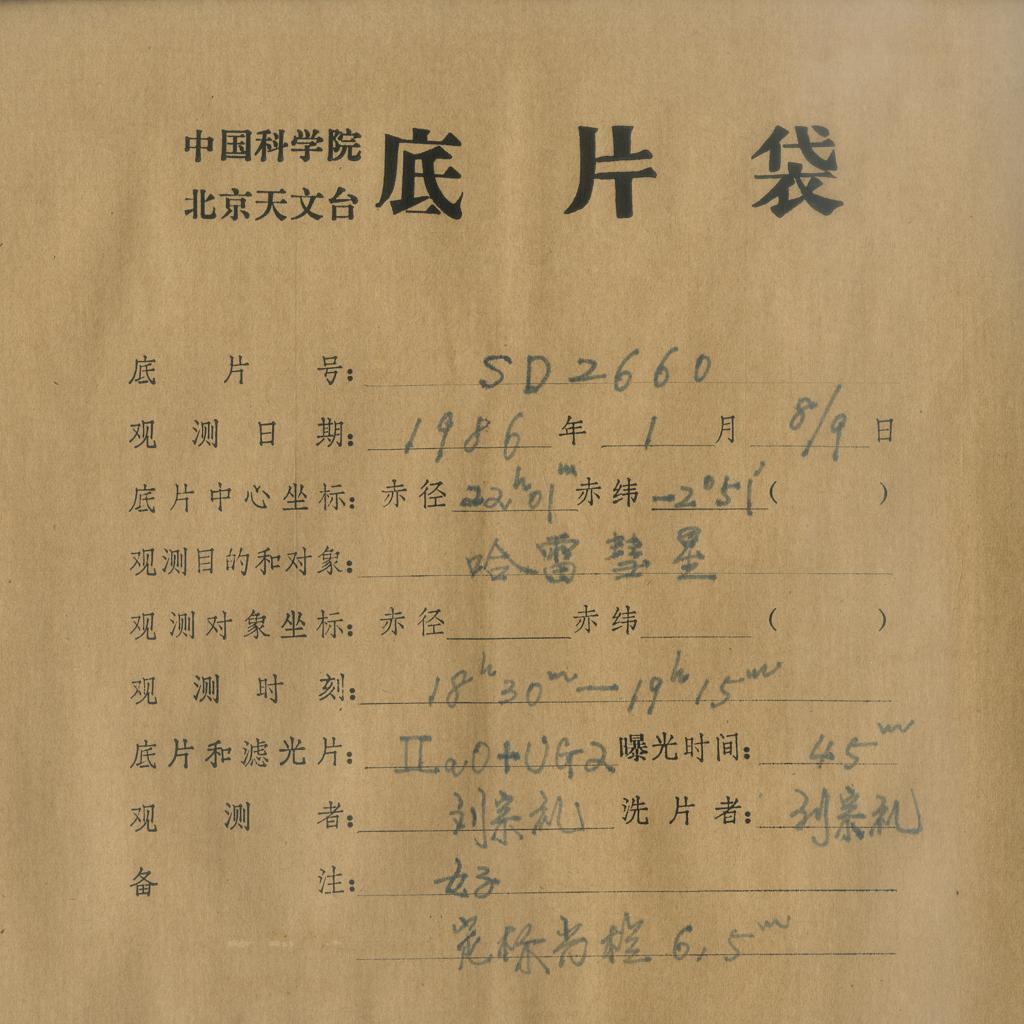 中国科学院
北京天文台
底片袋
底片号: SD2660
观测日期: 1986年 1月 8/9日
底片中心坐标: 赤径 22h01m 赤纬 -2°51′( )
观测目的和对象: 哈雷彗星
观测对象坐标: 赤径 赤纬 ( )
观测时刻: 18h30m—19h15m
底片和滤光片: IIaO+UG2 曝光时间: 45m
观测者: 刘宗礼 洗片者: 刘宗礼
备注: 好
6.5m